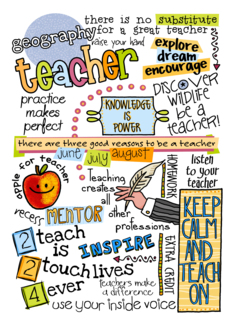 there is no substitute
for a great teacher
geography
raise your hand
explore
dream
encourage
teacher
DISCOVER
WILDLIFE
be a
teacher!
practice
makes
perfect
KNOWLEDGE
IS
POWER
there are three good reasons to be a teacher
june july august
apple for teacher
Teaching
creates
all
other
professions
HOMEWORK
listen
to your
teacher
recess
MENTOR
KEEP
CALM
AND
TEACH
ON
2 teach
is
INSPIRE
2 touch lives
4 ever
EXTRA CREDIT
teachers make
a difference
use your inside voice